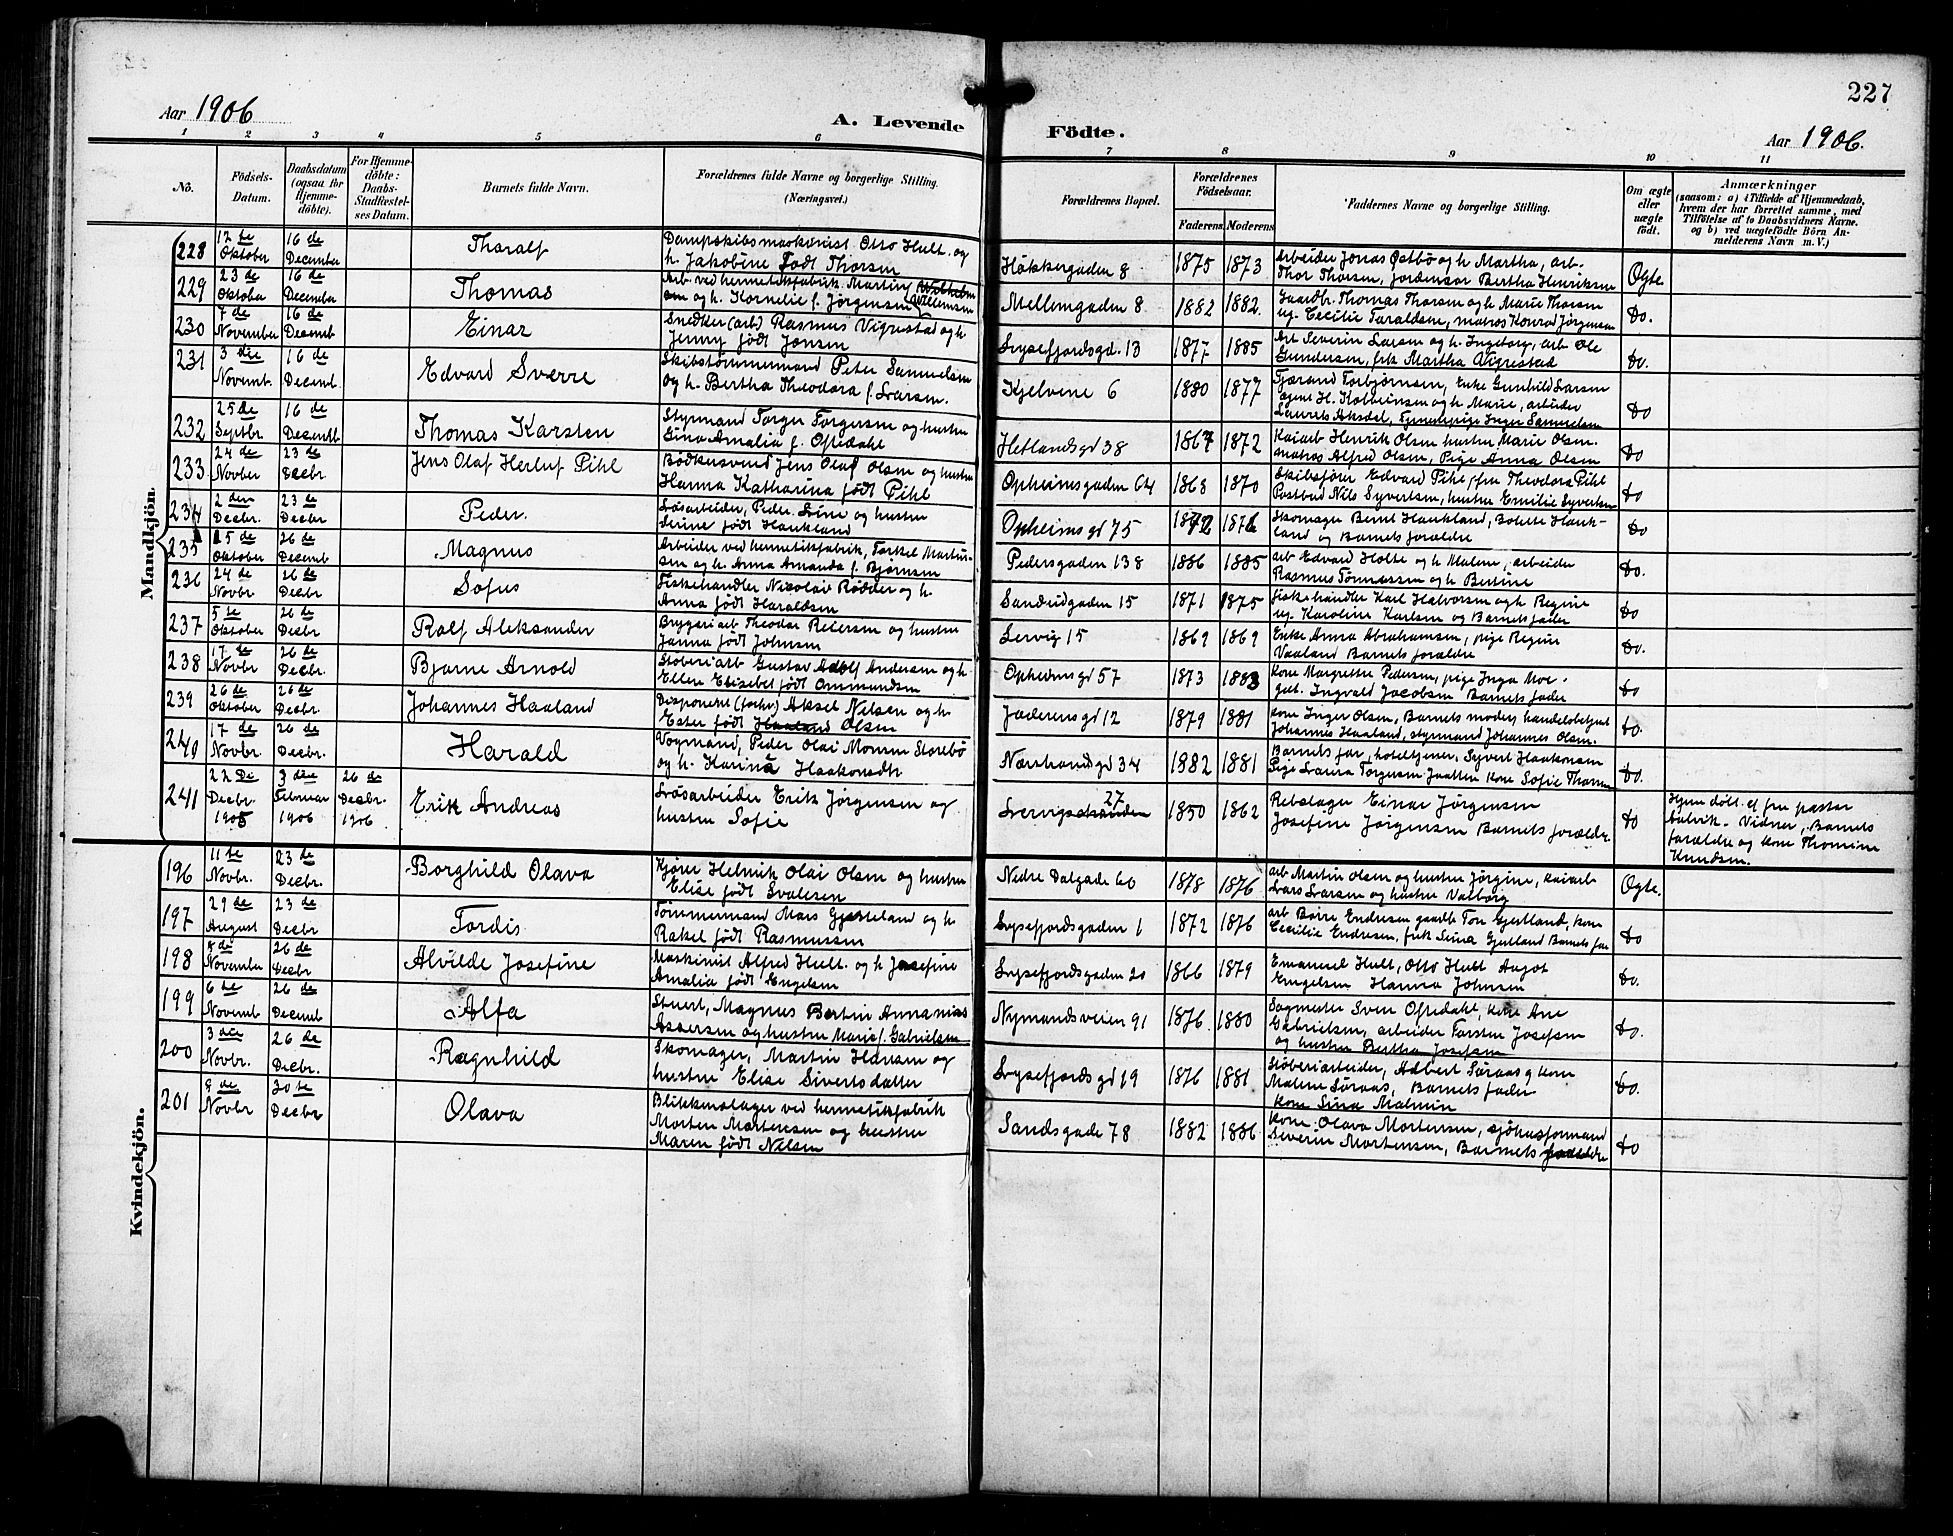 227
Aar 1906
A. Levende
Födte.
Aar 1906.
1 2 3 4 5 6 7 8 9 10 11
No.
Födsels-
Datum.
Daabsdatum
(ogsaa for
Hjemme-
döbte).
For Hjemme-
döbte:
Daabs-
Stadfæstel-
ses Datum.
Barnets fulde Navn.
Forældrenes fulde Navne og borgerlige Stilling.
(Næringsvei.)
Forældrenes Bopæl.
Forældrenes
Födselsaar.
Faderens
Moderens
Faddernes Navne og borgerlige Stilling.
Om ægte
eller
uægte
födt.
Anmærkninger
(saasom: a) i Tilfælde af Hjemmedaab,
hvem der har forrettet samme, med
Tilföielse af to Daabsvidners Navne.
og b) ved uægtefödte Börn An-
melderens Navn m.V.)
Mandkjön.
228 12te Oktober 16de December Tharalf
Dampskibsmaskinist Otto Hult. og
h. Jakobine Født Thorsen
Høkkergaden 8 1875 1873
Arbeider Jonas Østbö og h. Martha, arb.
Thor Thorsen, Jordemor Bertha Henriksen
Ogte.
229 23de Oktober 16de December Thomas
Arb. ved hermetikfabrik. Martin Wilhelm
og h. Kornelie f. Jörgensen (Willumsen
Mellemgaden 8 1882 1882.
Gaardbr. Thomas Thorsen og h. Marie Thorsen
ug. Cecilie Taraldsen, matros Konrad Jörgensen
Do.
230 7de November 16de Decemb Einar
Snedker (arb) Rasmus Vigrestad og h.
Jenny født Jansen
Lysefjordsgd. 13 1877 1885
Arb Severin Larsen og h. Ingeborg, arb Ole
Gundersen, frk Martha Vigrestad
Do.
231 3die Novemb. 16de Decemb. Edvard Sverre
Skibstömmermand Peter Samuelsen
og h. Bertha Theodora f. Larsen.
Kjelvene 6 1880 1877
Tjærand Torbjörnsen, Enke Gunhild Larsen
Laurets Aksdal, Inger Samuelsen
Do
232 25de Septbr. 16de Decemb Thomas Karsten
Styrmand Torger Torgersen og hustru
Gina Amalia f. Oftedahl
Hetlandsgd 38 1867 1872
Kaiarb Henrik Olsen hustru Marie Olsen.
Matros Alfred Olsen, Pige Anna Olsen
Do
233 24de Novber 23de Decbr Jens Olaf Herluf Pihl
Bödkersvend Jens Olaf Olsen og hustru
Hanna Katharina født Pihl
Opheimsgaden 64 1868 1870
Skibsförer Edvard Pihl, fru Theodora Pihl
Postbud Nils Syvertsen, hustru Emilie Syvertsen
Do
234 2den Decbr. 23de Decbr Peder.
Lösarbeider, Peder Line og hustru
Serine født Haukland
Opheimsgd 75 1872 1876
Skomager Bernt Haukland, Bolette Hauk-
land og Barnets forældre
Do
235 15de Oktober 26de Decemb Magnus
Arbeider ved hermetikfabrik, Torkel Martin-
sen og h. Anna Amanda f. Bjørnsen
Pedersgaden 138 1886 1885
Arb Edvard Holte og h Malene, arbeider
Rasmus Tönnessen og h Bertine
Do.
236 24de Novbr 26de Decbr Sofus
Fiskehandler Nicolai Rødder og h.
Anna født Haraldsen
Sandvigaden 15 1871 1875
Fiskehandler Karl Halvorsen og h Regine
ug. Karoline Karlsen og Barnets fader
Do
237 5te Oktober 26de Decbr Rolf Aleksander
Bryggeriarb Theodor Petersen og hustru
Janna født Johnsen
Lervig 15 1869 1869
Enke Anna Abrahamsen, pige Regine
Vaaland Barnets forældre
Do.
238 17de Novbr 26de Decbr. Bjarne Arnold
Stöberiarb Gustav Adolf Andersen og h.
Ellen Elisebet født Ommundsen
Opheimsgd 57 1873 1883
Kone Margrethe Pedersen, pige Inga Moe-
gut. Ingvald Jacobsen Barnets fader
Do
239 26de Oktober 26de Decbr. Johannes Haaland
Disponent (forhv.) Aksel Nilsen og h.
Ester født Haaland Olsen
Jaderensgd 12 1879 1881
Kone Inger Olsen, Barnets moder, handelsbetjent
Johannes Haaland, styrmand Johannes Olsen.
Do.
240 17de Novbr. 26de Decbr. Harald
Vogmand, Peder Olai Monsen Storebö
og h. Karina Haakonsdtr
Næstrandsgd 34 1882 1881
Barnets far, hoteltjener, Syvert Haakonsen
Pige Laura Torgersen Jaatten kone Sofie Thorsen
Do.
241 22de Decbr. 1905 3die Februar 1906 26de Decbr. 1906 Erik Andreas
Lösarbeider Erik Jörgensen og
hustru Sofie
Lervigstranden 27 1850 1862
Rebslager Einar Jörgensen
Josefine Jörgensen Barnets forældre.
Do
Hjem døbt af fru pastor
Aalvik. Vidner, Barnets
forældre og kone Thomine
Knudsen.
Kvindekjön.
196 11te Novbr. 23de Decbr. Borghild Olava
Kjörer Helmik Olai Olsen og hustru
Elise født Svalesen
Nedre Dalgade 60 1878 1876
Arb Martin Olsen og hustru Jörgine, kaiarb
Lars Larsen og hustru Valborg
Ogte.
197 29de August 23de Decbr Tordis
Tömmermand Mars Gjesteland og h.
Rakel født Rasmussen
Lysefjordsgaden 1 1872 1876
Arb Börre Endresen gaardb Ton Gjertland, kone
Cecilie Endresen, frk Sina Gjertland Barnets far
Do
198 November 26de Decbr Alvilde Josefine
Maskinist Alfred Hult. og h Josefine
Amalia født Engelsen
Lysefjordsgaden 20 1866 1879
Emanuel Hult, Otto Hult Aagot
Engelsen Hanna Johnsen
Do.
199 6te Novemb 26de Decemb Alfa
Stuert, Magnus Bertin Annanias
Assersen og hustru Marie f. Gabrielsen
Nymandsveien 91 1876. 1880
Sagmester Sven Oftedahl, kone Ane
Gabrielsen, arbeider Torsten Josefsen
og hustru Bertha Josefsen
Do.
200 3die Novbr. 26de Decbr. Ragnhild
Skomager, Martin Hansen og
hustru Elise Sivertsdatter
Lysefjordsgd 19 1876 1881
Stöberiarbeider, Adbert Söraas og kone
Malene Söraas, Barnets fader
kone Sina Malmin
Do.
201 9de Novbr 30te Decbr Olava
Blikkenslager ved hermetikfabrik
Morten Mortensen og hustru
Maren født Nilsen
Sandsgade 78 1882 1886
Kone Olava Mortensen, sjöhusformand
Severin Mortensen, Barnets forældre
Do